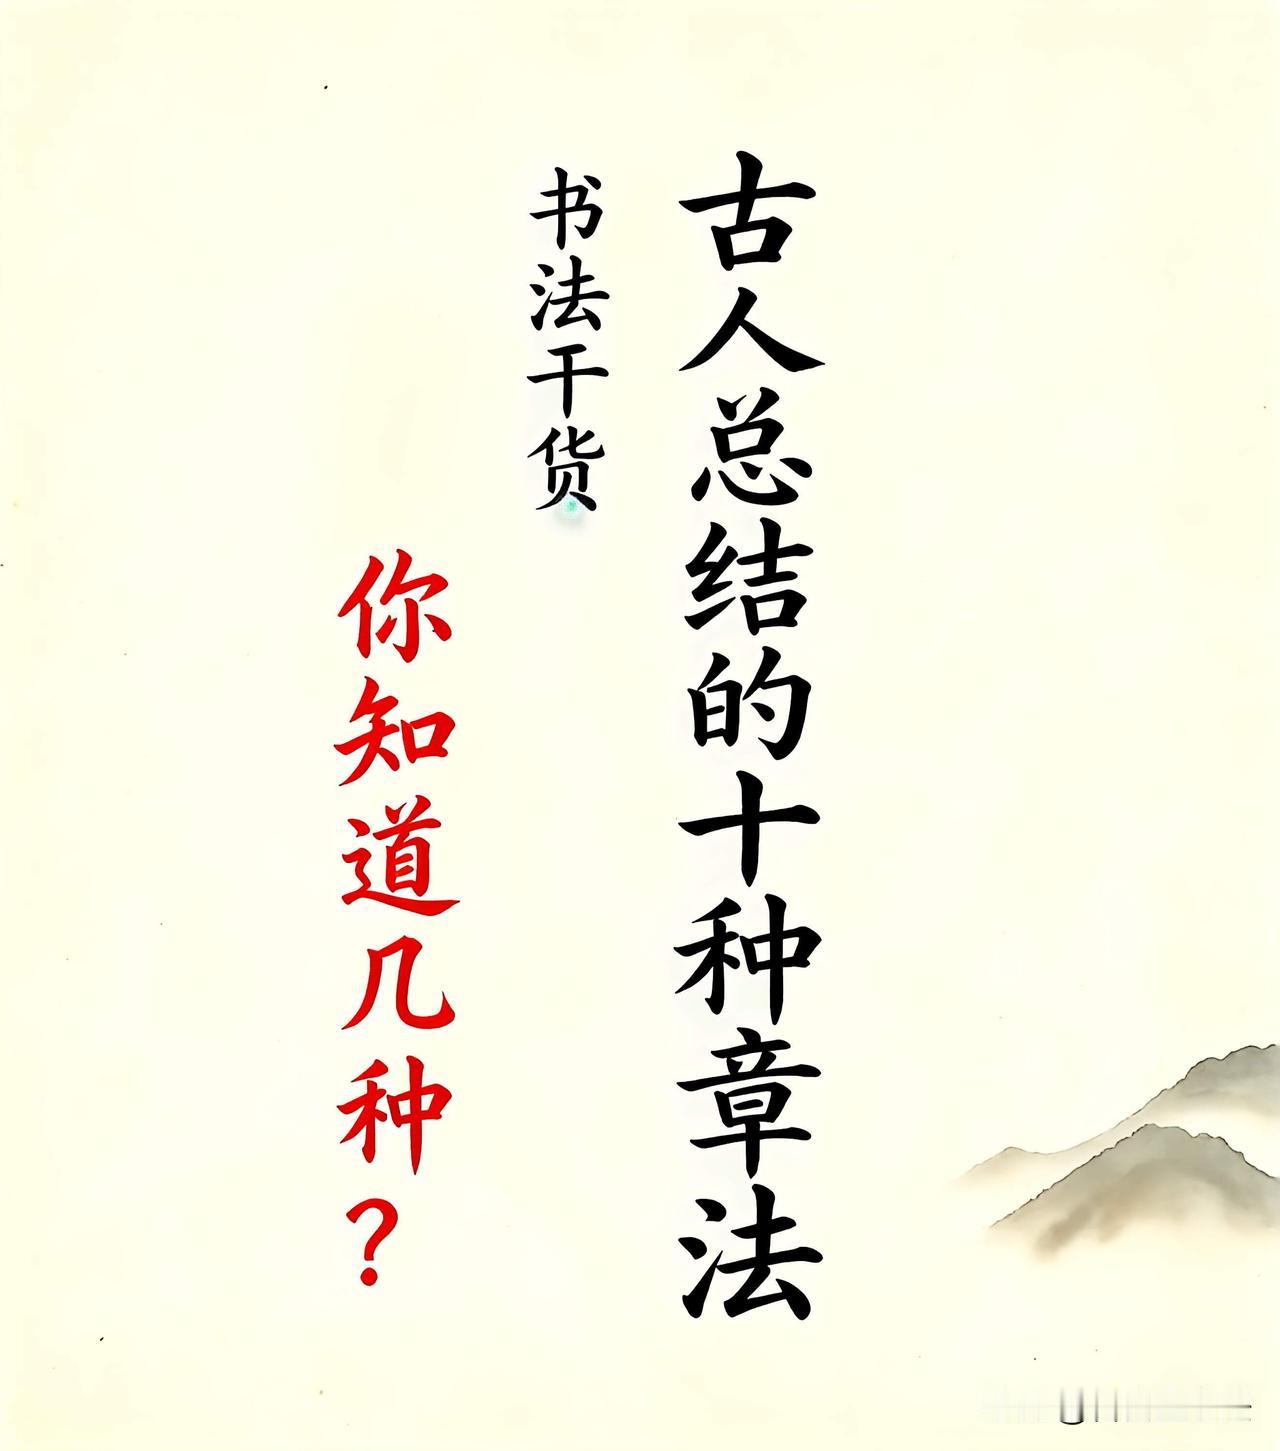 古人总结的十种章法
书法干货
你知道几种？